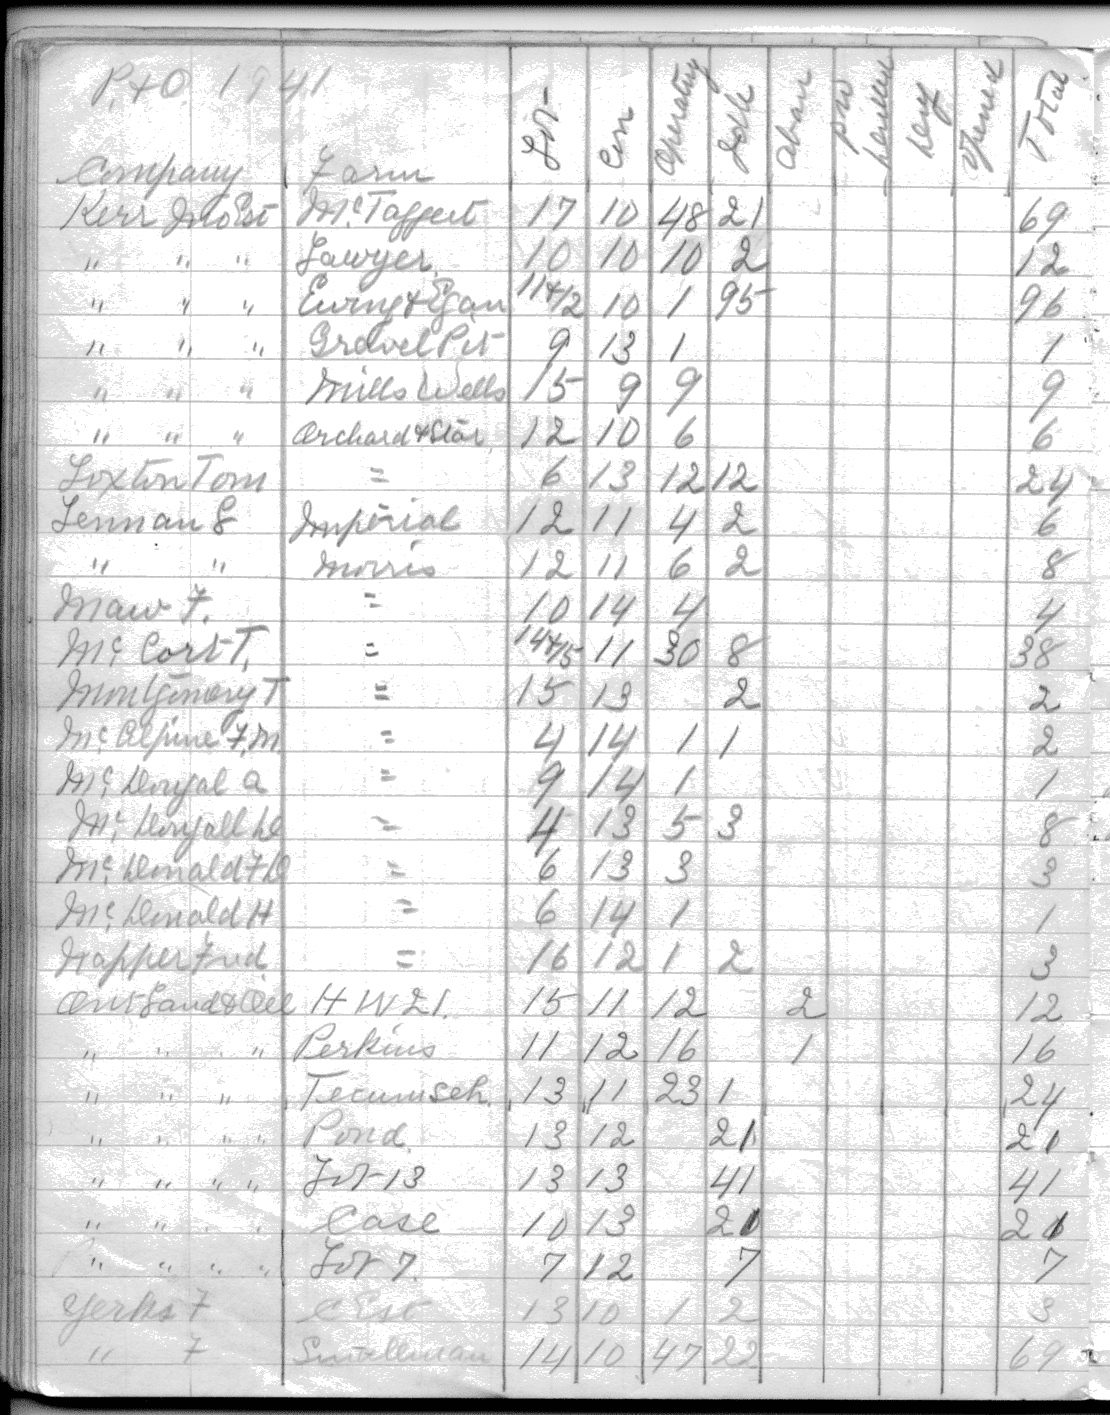 P.&O. 1941
Company Farm Lot Con Operating Idle aban pro ducer Dry Total
Kerr Jno Est McTaggert 17 10 48 21 69
" " " Sawyer 10 10 10 2 12
" " " Ewing & Egan 11&12 10 1 95 96
" " " Gravel Pit 9 13 1 1
" " " Mills Wells 15 9 9 9
" " " Orchard & Star 12 10 6 6
Loxton Tom = 6 13 12 12 24
Lennan G Imperial 12 11 4 2 6
" " Morris 12 11 6 2 8
Maw F. = 10 14 4 4
Mc Cort T. = 14&15 11 30 8 38
Montgomery T = 15 13 2 2
Mc Alpine F.M = 4 14 1 1 2
Mc Dougal A = 9 14 1 1
Mc Dougall D = 4 13 5 3 8
Mc Donald F D = 6 13 3 3
Mc Donald H = 6 14 1 1
Napper Fred = 16 12 1 2 3
Ont Land & Oil H W 21. 15 11 12 2 12
" " " Perkins 11 12 16 1 16
" " " Tecumseh. 13 11 23 1 24
" " " " Pond. 13 12 21 21
" " " " Lot 13 13 13 41 41
" " " " Case 10 13 21 21
" " " " Lot 7. 7 12 7 7
Yerks F Est 13 10 1 2 3
" F Smallman 14 10 47 22 69